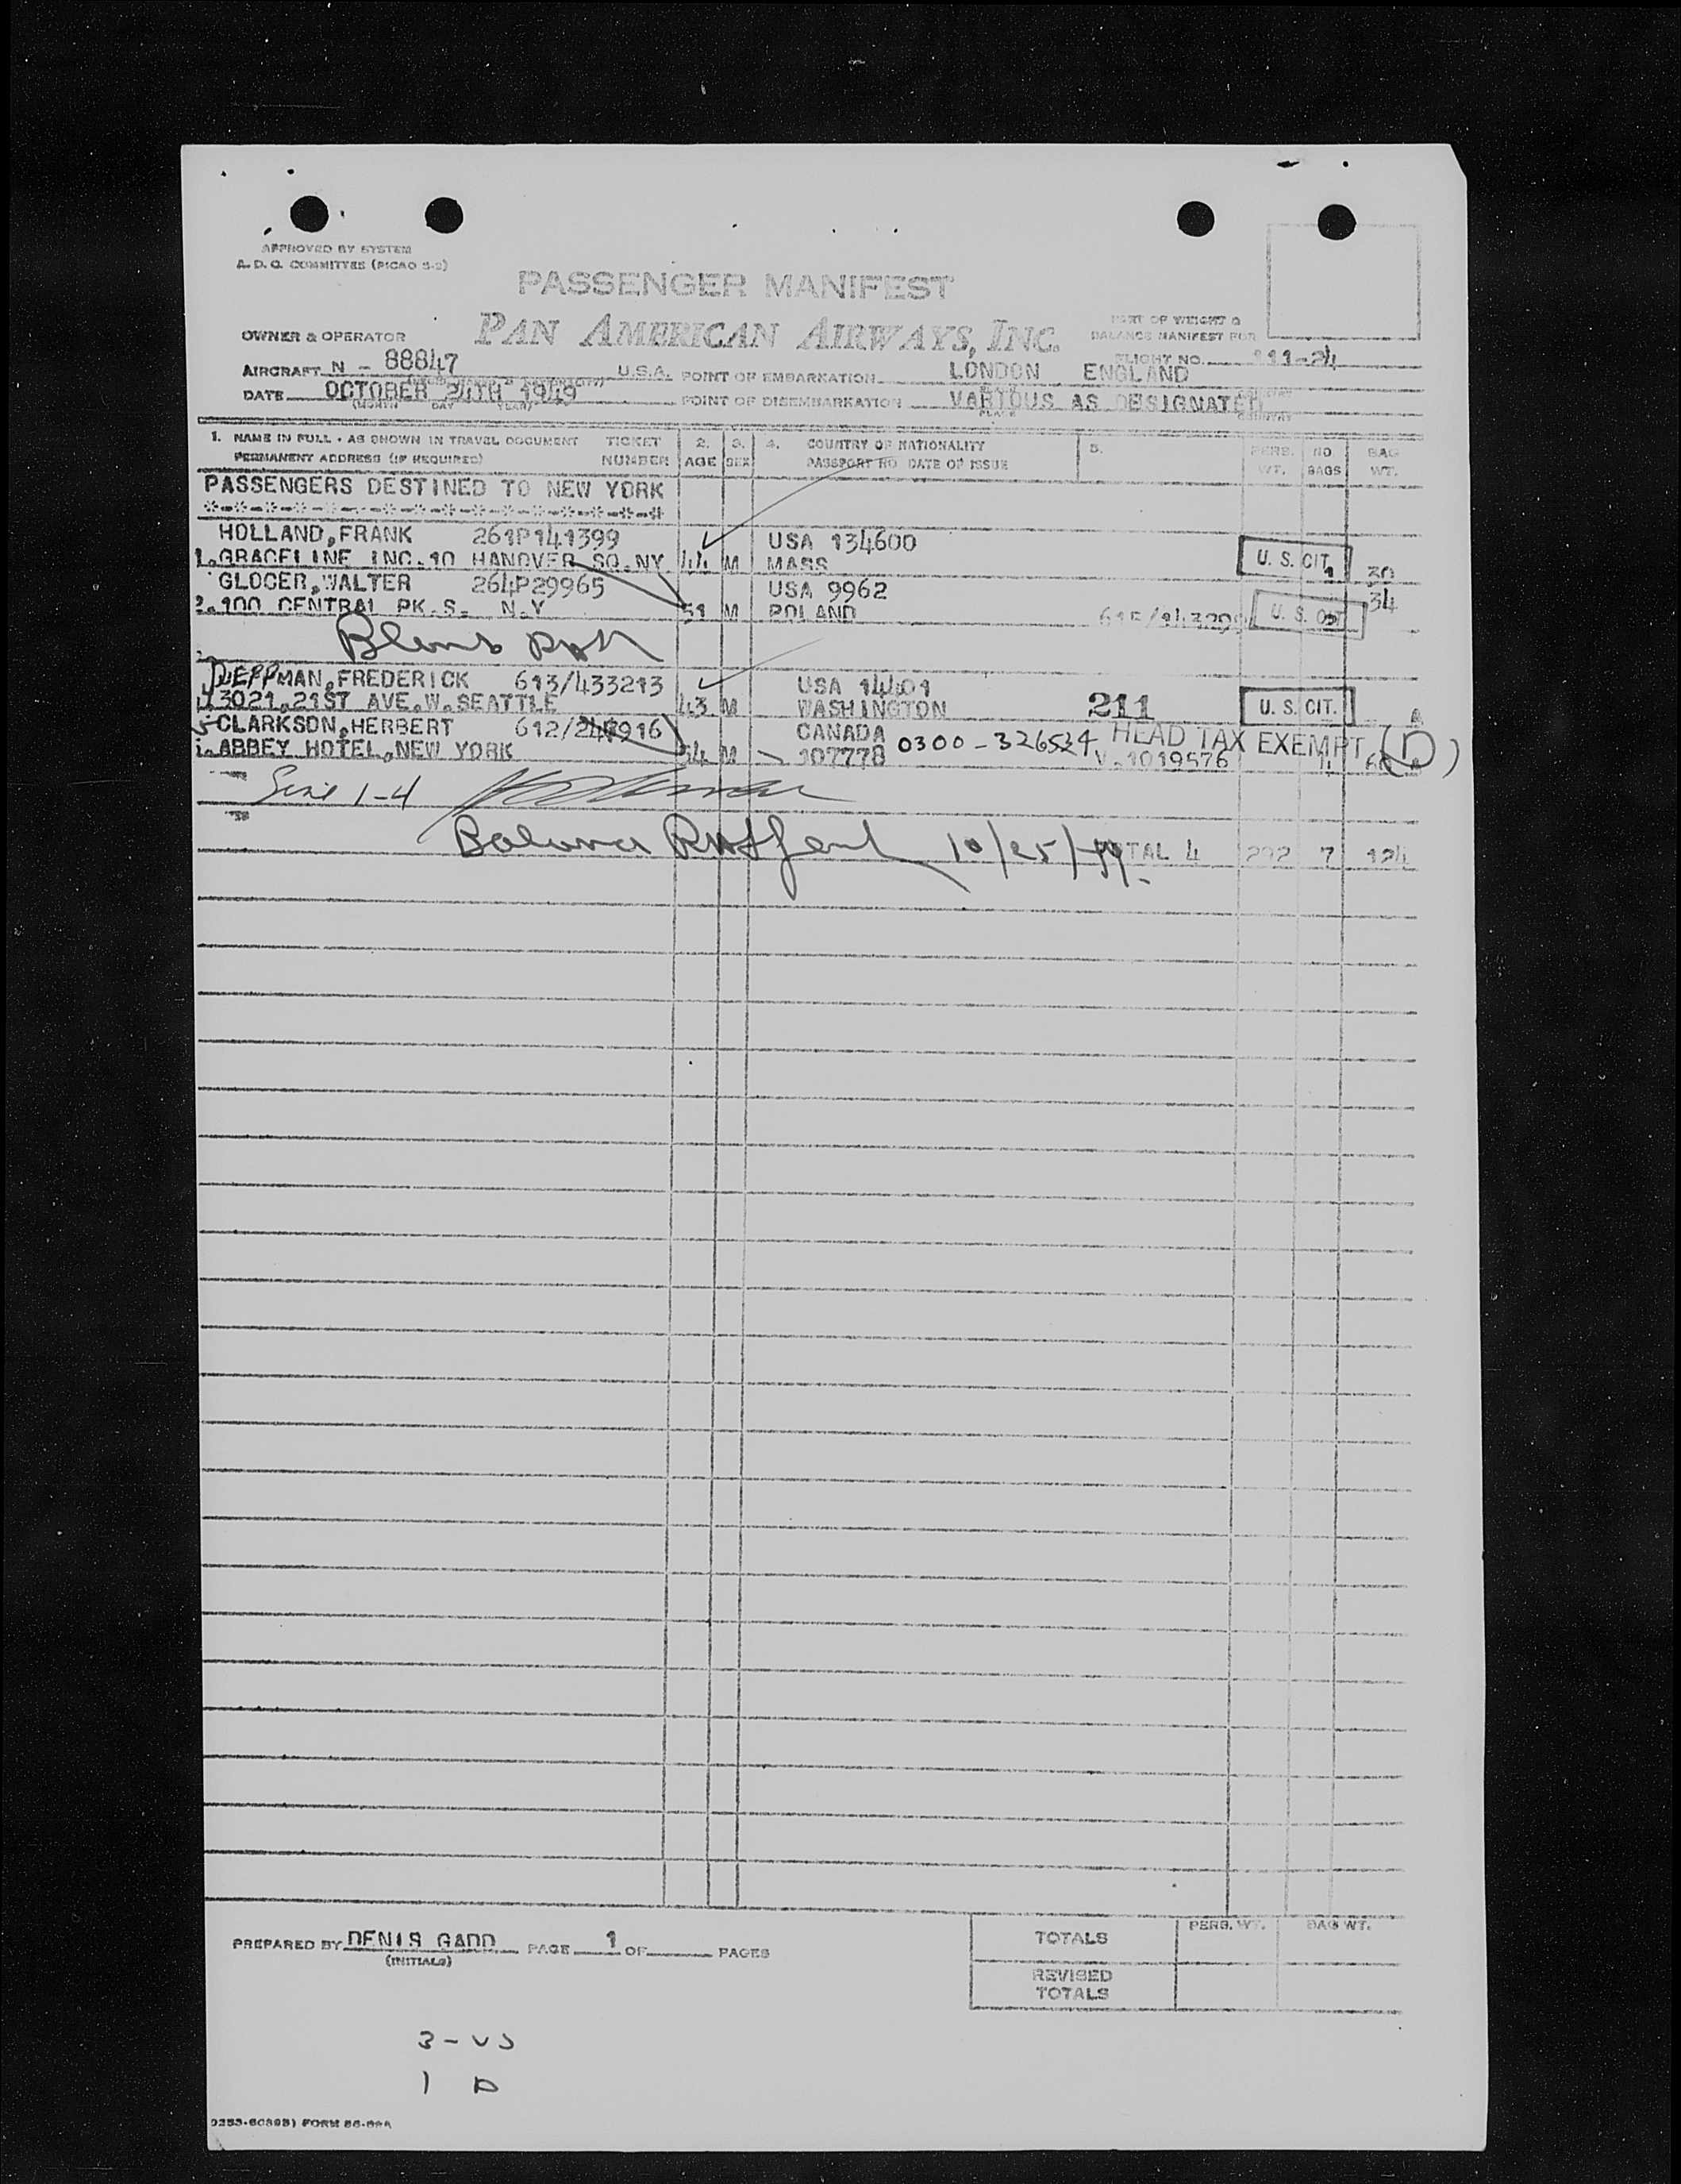 APPROVED BY SYSTEM
A. D. Q. COMMITTEE (PICAO S-2)
PASSENGER MANIFEST
OWNER & OPERATOR PAN AMERICAN AIRWAYS, INC. PART OF WEIGHT & BALANCE MANIFEST FOR
FLIGHT NO. 111-24
AIRCRAFT N - 88847 U.S.A. POINT OF EMBARKATION LONDON ENGLAND
DATE OCTOBER 24TH 1949 POINT OF DISEMBARKATION VARIOUS AS DESIGNATED
(MONTH DAY YEAR) PLACE COUNTRY
1. NAME IN FULL - AS SHOWN IN TRAVEL DOCUMENT TICKET 2. 3. 4. COUNTRY OF NATIONALITY 5. PERS. NO BAG
PERMANENT ADDRESS (IF REQUIRED) NUMBER AGE SEX PASSPORT NO DATE OF ISSUE WT. BAGS WT.
PASSENGERS DESTINED TO NEW YORK
*-*-*-*-*-*-*-*-*-*-*-*-*-*-*-*
HOLLAND,FRANK 261P141399 USA 134600
1.GRACELINE INC.10 HANOVER SQ.NY 44 M MASS U. S. CIT. 1 30
GLOCER,WALTER 264P29965 USA 9962 34
2.100 CENTRAL PK.S. N.Y 51 M POLAND U. S. CIT
DEPPMAN,FREDERICK 613/433213 USA 14401
3021,21ST AVE.W.SEATTLE 43 M WASHINGTON 211 U. S. CIT.
CLARKSON,HERBERT CANADA 0300-326524 HEAD TAX EXEMPT (D)
ABBEY HOTEL,NEW YORK 54 M 107778 V.1019576 4
1-4
10/25/49. TOTAL 4 292 7 124
PREPARED BY DENIS GADD PAGE 1 OF PAGES
(INITIALS)
TOTALS PERS. WT. BAG WT.
REVISED
TOTALS
3 - US
1 D